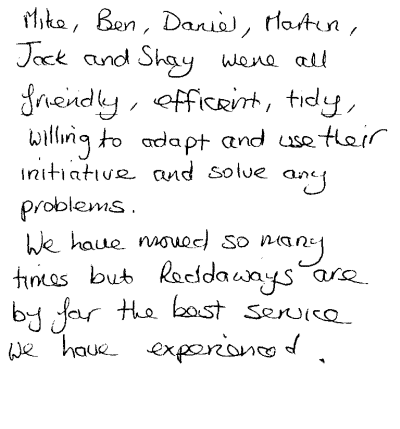 Mike, Ben, Daniel, Martin,
Jack and Shay were all
friendly, efficent, tidy,
willing to adapt and use their
initiative and solve any
problems.
We have moved so many
times but Reddaways are
by far the best service
we have experienced.